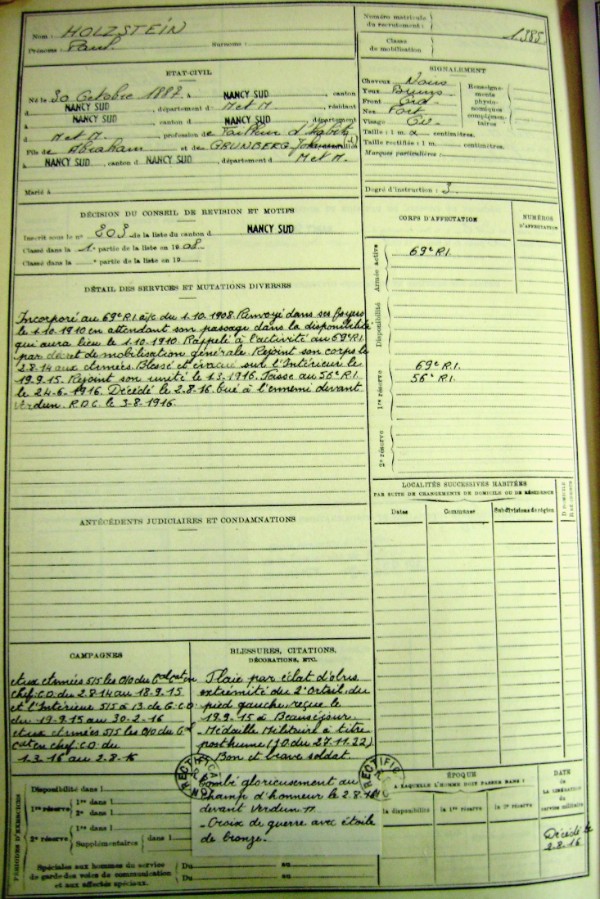 Nom : HOLZSTEIN
Prénoms : Paul Surnoms :
Numéro matricule du recrutement : 1385
Classe de mobilisation
ETAT-CIVIL
Né le 30 Octobre 1887, à NANCY SUD, canton
d NANCY SUD, département d M et M, résidant
à NANCY SUD, canton d NANCY SUD, département
d M et M, profession de Tailleur d'habits
Fils de Abraham et de GRUNBERG
à NANCY SUD, canton d NANCY SUD, département d M et M.
Marié à
SIGNALEMENT
Cheveux Noirs
Yeux Bruns
Front Ord
Nez Fort
Visage
Renseignements physionomiques complémentaires
Taille : 1 m. centimètres.
Taille rectifiée : 1 m. centimètres.
Marques particulières :
Degré d'instruction : 3
DÉCISION DU CONSEIL DE REVISION ET MOTIFS
Inscrit sous le n° 303 de la liste du canton d NANCY SUD
Classé dans la 1e partie de la liste en 1908
Classé dans la e partie de la liste en 19
CORPS D'AFFECTATION
NUMÉROS D'AFFECTATION
Armée active
69e R.I.
Disponibilité
1re réserve
69e R.I.
56e R.I.
2e réserve
DÉTAIL DES SERVICES ET MUTATIONS DIVERSES
Incorporé au 69e R.I. à/c du 1.10.1908. Renvoyé dans ses foyers
le 1.10.1910 en attendant son passage dans la disponibilité
qui aura lieu le 1.10.1910. Rappelé à l'activité au 69e R.I.
par décret de mobilisation générale. Rejoint son corps le
2.8.14 aux Armées. Blessé et évacué sur l'Intérieur le
19.9.15. Rejoint son unité le 1.3.1916. Passé au 56e R.I.
le 24.6.1916. Décédé le 2.8.16 tué à l'ennemi devant
Verdun. R.D.C. le 3.8.1916.
LOCALITÉS SUCCESSIVES HABITÉES
PAR SUITE DE CHANGEMENTS DE DOMICILE OU DE RÉSIDENCE
Dates Communes Subdivisions de région
ANTÉCÉDENTS JUDICIAIRES ET CONDAMNATIONS
CAMPAGNES
aux Armées S/S les O/O du Gal Cat en
chef. C.D. du 2.8.14 au 18.9.15
et l'Intérieur S/S à 13. de G. C.D
du 19.9.15 au 30.2.16
aux Armées S/S les O/O du Gal
Cat en chef C.D. du
1.3.16 au 2.8.16
BLESSURES, CITATIONS,
DÉCORATIONS, ETC.
Plaie par éclat d'obus
extrémité du 2e orteil, du
pied gauche, reçue le
19.9.15 à Beauséjour
Médaille Militaire à titre
posthume (JO du 27.11.22)
Bon et brave soldat
tombé glorieusement au
champ d'honneur le 2.8.1916
devant Verdun
- Croix de guerre avec étoile
de bronze.
RECTIFIC
RECTIFIC
PÉRIODES D'EXERCICES
Disponibilité dans l
1re réserve
1re dans l
2e dans l
2e réserve
1re dans l
Supplémentaires dans l
Spéciales aux hommes du service
de garde des voies de communication
et aux affectés spéciaux.
Du au
Du au
ÉPOQUE
A LAQUELLE L'HOMME DOIT PASSER DANS :
la disponibilité la 1re réserve la 2e réserve
DATE DE LA LIBÉRATION du service militaire
Décédé le
2.8.16